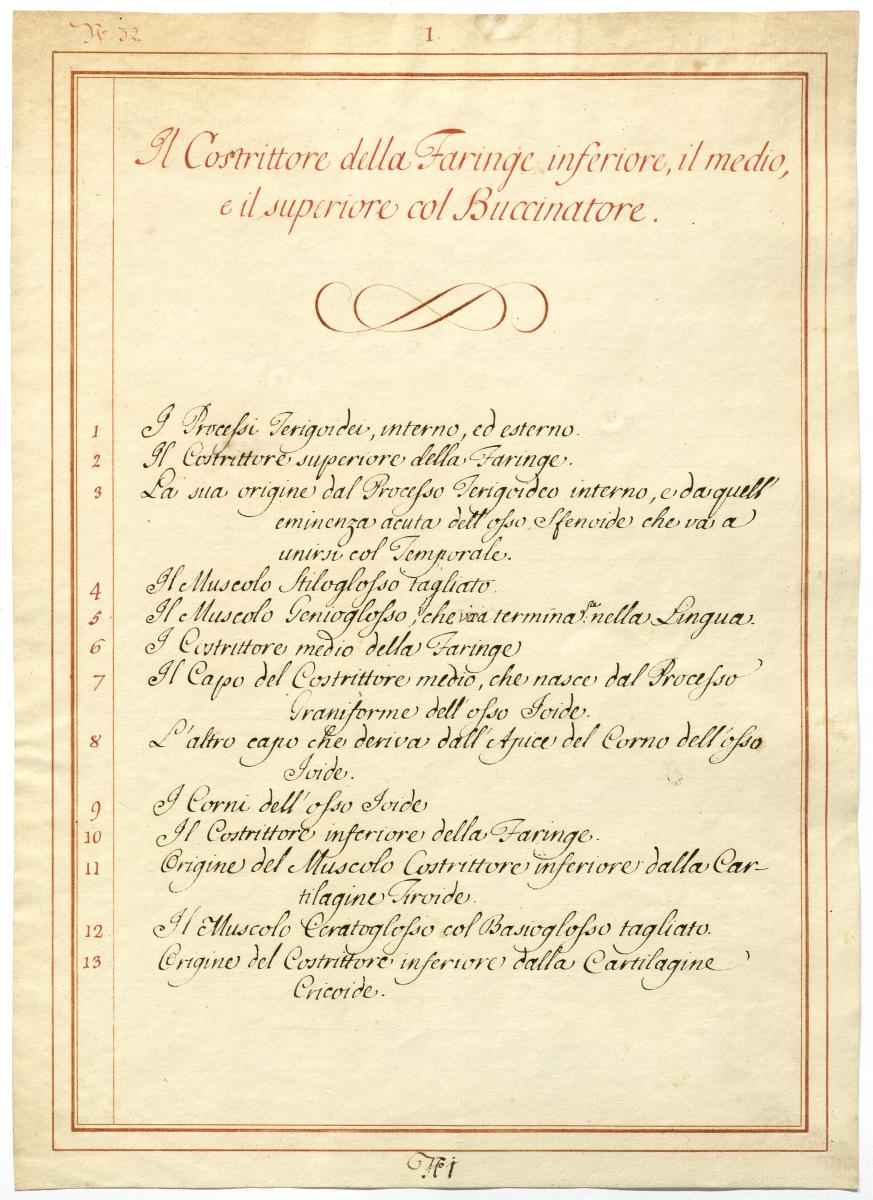 N. 32
I
Il Costrittore della Faringe inferiore, il medio,
e il superiore col Buccinatore.
1 I Processi Terigoidei, interno, ed esterno.
2 Il Costrittore superiore della Faringe.
3 La sua origine dal Processo Terigoideo interno, e da quell'
eminenza acuta dell'osso Sfenoide che va a
unirsi col Temporale.
4 Il Muscolo Stiloglosso tagliato.
5 Il Muscolo Genioglosso, che termina nella Lingua.
6 I Costrittore medio della Faringe
7 Il Capo del Costrittore medio, che nasce dal Processo
Graniforme dell'osso Ioide.
8 L'altro capo che deriva dall'Apice del Corno dell'osso
Ioide.
9 I Corni dell'osso Ioide
10 Il Costrittore inferiore della Faringe.
11 Origine del Muscolo Costrittore inferiore dalla Car-
tilagine Tiroide.
12 Il Muscolo Ceratoglosso col Basioglosso tagliato.
13 Origine del Costrittore inferiore dalla Cartilagine
Cricoide.